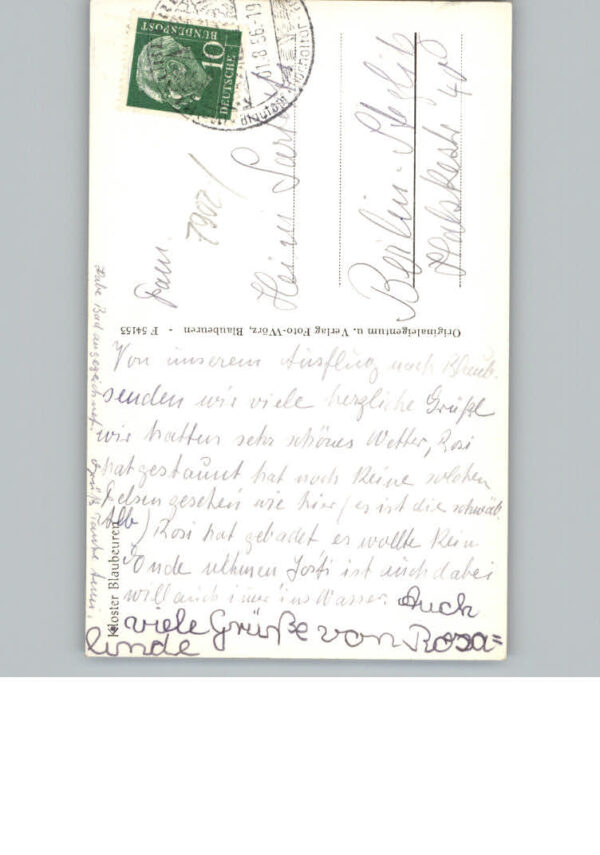 DEUTSCHE
BUNDESPOST
10
1.8.56-19
Fam.
7902/
Heinz
Berlin-Steglitz
Halskestr 40
Originaleigentum u. Verlag Foto-Wörz, Blaubeuren - F 54153
Kloster Blaubeuren
Von unserem Ausflug nach
senden wir viele herzliche Grüße
wir hatten sehr schönes Wetter, Rosi
hat gestaunt hat noch keine solchen
Felsen gesehen wie hier (es ist die schwäb.
Alb) Rosi hat gebadet es wollte kein
Ende nehmen ist auch dabei
will auch immer ins Wasser. Auch
viele Grüße von Rosa=
linde
Habe Bad ausgezeichnet. Gruß Tante